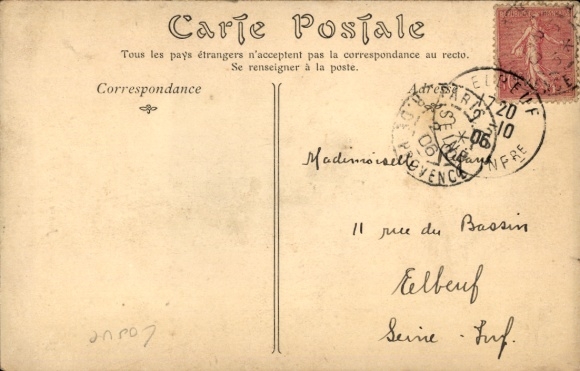 Carte Postale
Tous les pays étrangers n'acceptent pas la correspondance au recto.
Se renseigner à la poste.
Correspondance
Adresse
ELBEUF
17 20
2-10
06
INFRE
PARIS
PROVENCE
Mademoiselle
11 rue du Bassin
Elbeuf
Seine - Inf.